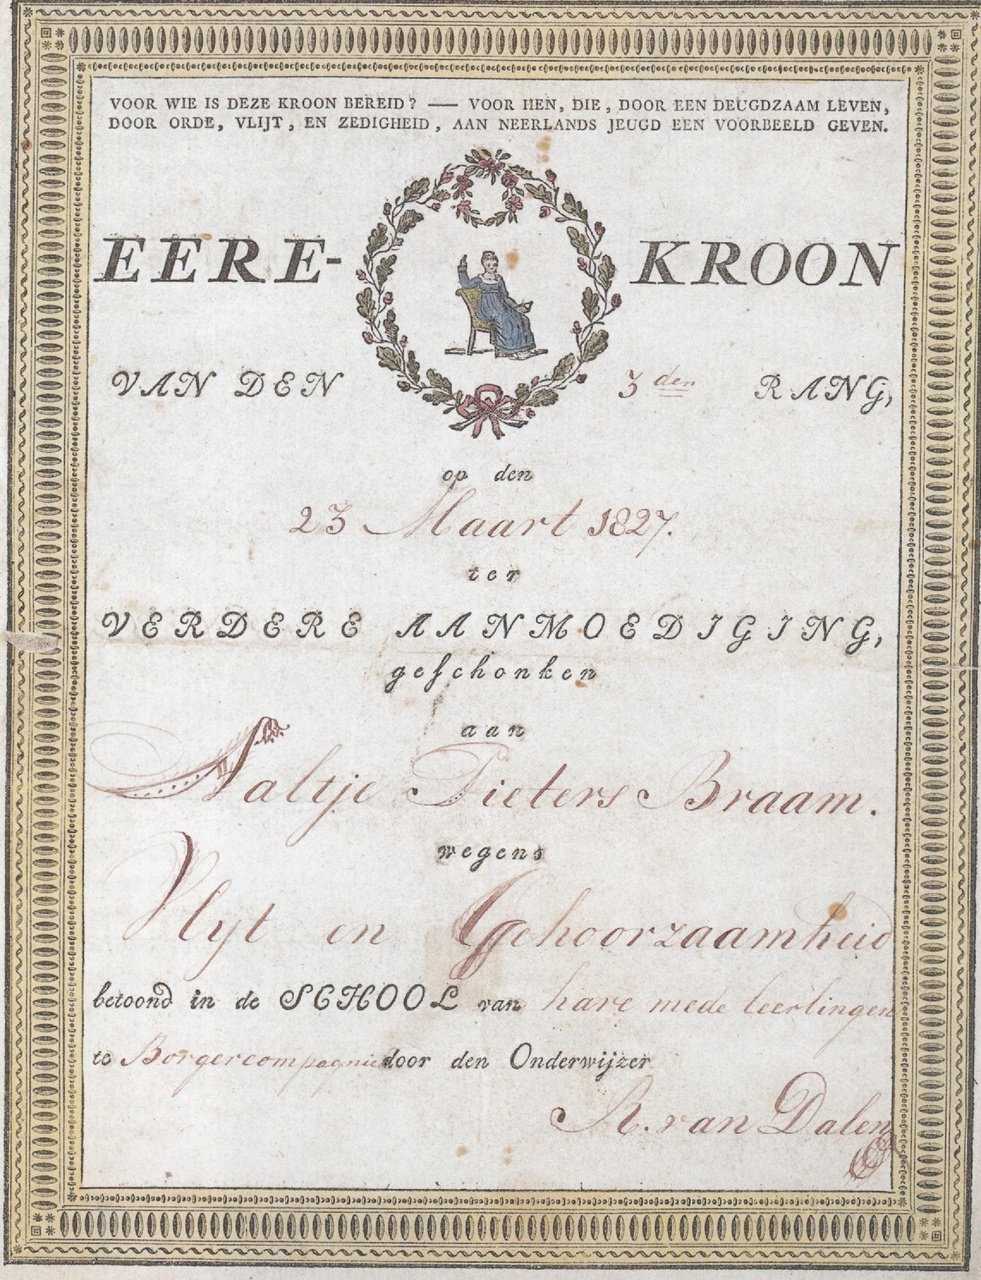 VOOR WIE IS DEZE KROON BEREID? — VOOR HEN, DIE, DOOR EEN DEUGDZAAM LEVEN,
DOOR ORDE, VLIJT, EN ZEDIGHEID, AAN NEERLANDS JEUGD EEN VOORBEELD GEVEN.
EERE-KROON
VAN DEN 3den RANG,
op den
23 Maart 1827.
ter
VERDERE AANMOEDIGING,
geſchonken
aan
Aaltje Pieters Braam.
wegens
Vlyt en Gehoorzaamheid
betoond in de SCHOOL van hare mede leerlingen
te Borgercompagnie door den Onderwijzer
A. van Dalen